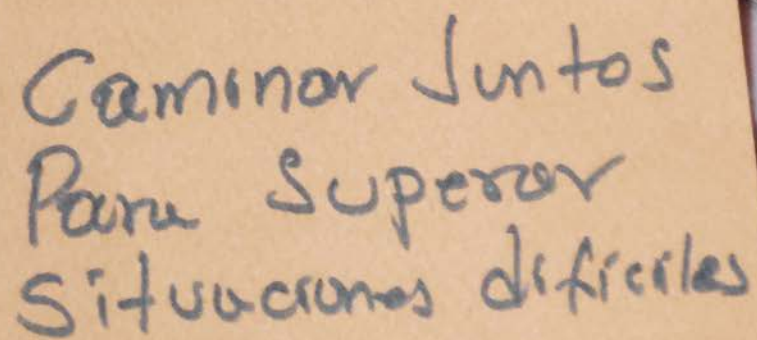 Caminar Juntos
Para Superar
Situaciones dificiles